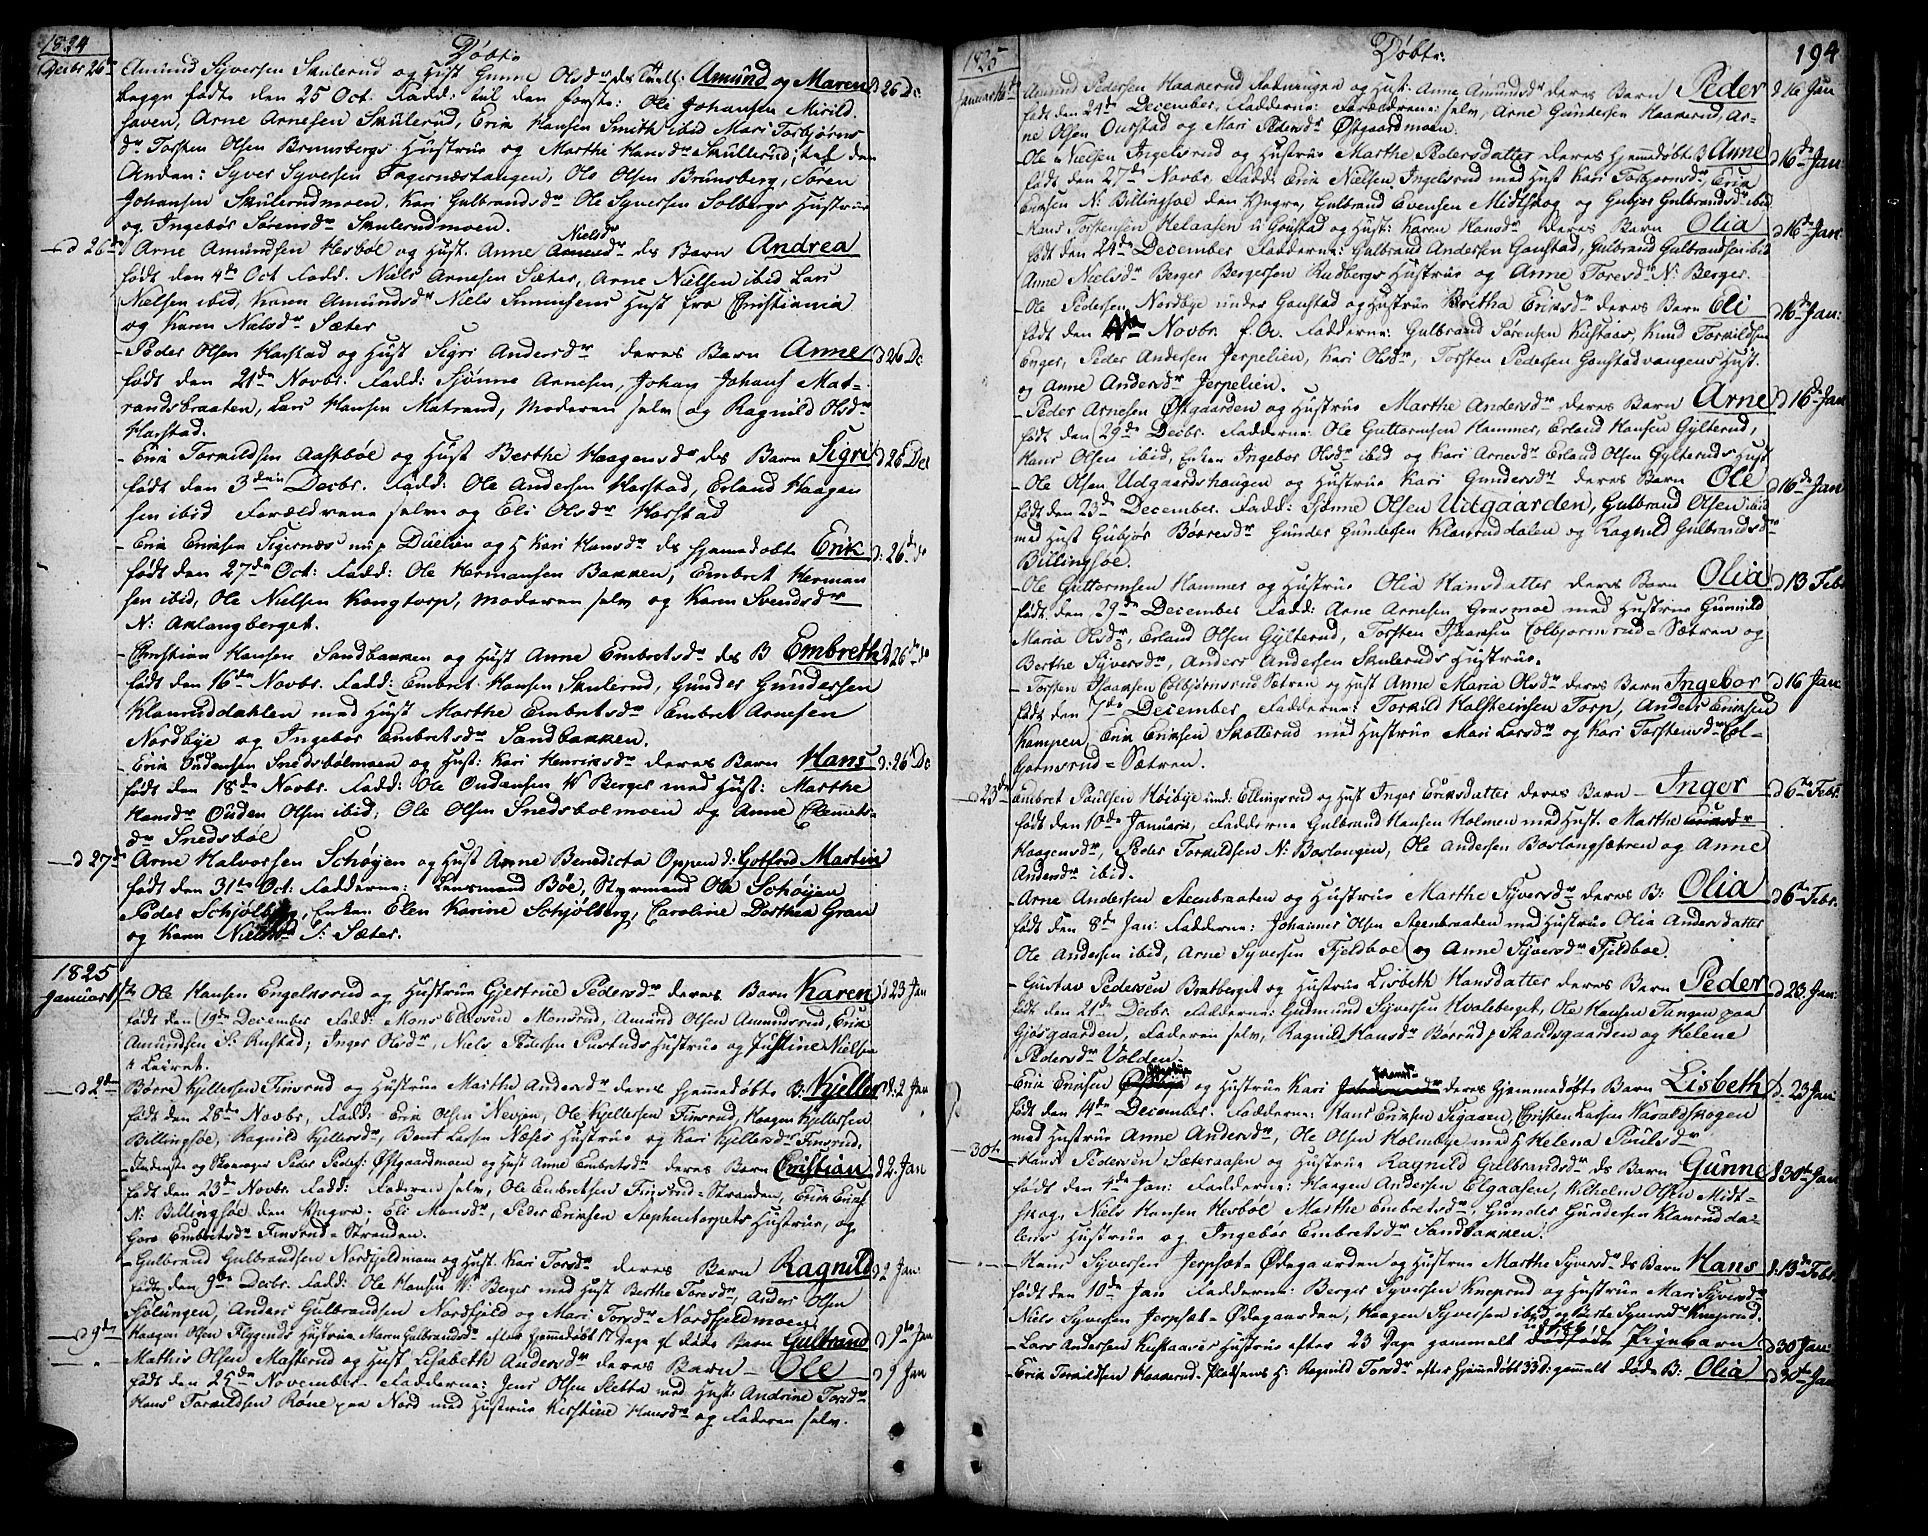 1824
Døbte
Decbr 26de Amund Syversen Skulerud og Hust Gunne Olsdr des Tvill: Amund og Maren d 26 De
begge fødte den 25 Oct. Fadd: til den første: Ole Johansen Mirild
haven, Arne Arnesen Skulerud, Erik Hansen Smith ibid Mari Torbjørns
dr Torsten Olsen Brunsbergs Hustrue og Marthe Hansdr Skullerud; til den
Anden: Syver Syversen Fagernæstangen, Ole Olsen Brunsberg, Søren
Johansen Skulerudmoen, Kari Gulbrandsdr Ole Syversen Solbergs Hustrue
og Ingebor Sørensdr Skulerudmoen.
d 26de Arne Amundsen Hesbøl og Hust. Anne Nielsdr des Barn Andrea
født den 4de Oct Fadd: Niels Arnesen Sæter, Arne Nielsen ibid Lars
Nielsen ibid, Karen Amundsdr Niels Simensens Hust fra Christiania
og Karen Nielsdr Sæter
Peder Olsen Harstad og Hust Sigri Andersdr deres Barn Anne d 26 De
født den 21de Novbr. Fadd: Sjønne Arnesen, Johan Johans Mat-
randsbraaten, Lars Hansen Matrand, Moderen selv og Ragnild Olsdr
Harstad.
Erik Torkildsen Aastbøl og Hust Berthe Haagensdr des Barn Sigri d 26 Dec
født den 3die Decbr. Fadd: Ole Andersen Harstad, Erland Haagen
sen ibid Forældrene selv og Eli Olsdr Harstad
Erik Eriksen Sigernæs Duelien og H Kari Hansdr ds hjemedøbte Erik d: 26de De
født den 27de Oct: Fadd: Ole Hermansen Bakken, Embret Herman
sen ibid, Ole Nielsen Kongtorp, Moderen selv og Karen Svendsdr
N: Aklangberget.
Christian Hansen Sandbakken og Hust Anne Embretsdr des B Embreth d 26de De
født den 16de Novbr. Fadd: Embret Hansen Skulerud, Gunder Gundersen
Klanruddahlen med Hust Marthe Embretsdr Embret Arnesen
Nordbye og Ingebor Embretsdr Sandbakken.
Erik Oudensen Snedsbølmoen og Hust: Kari Henriksdr deres Barn Hans d: 26 De
født den 18de Novbr. Fadd: Ole Oudansen W Berger med Hust: Marthe
Hansdr Ouden Olsen ibid, Ole Olsen Snedsbolmoen og Anne Clemets-
dr Snedsbøl
d 27de Arne Halvorsen Schøyen og Hust Anne Benedicta Oppen d: Gotfred Martin
født den 31te Oct: Fadderne: Lensmand Bøe, Styrmand Ole Schøyen
Peder Schjølberg, Enken Elen Karine Schjølberg, Caroline Dorthea Gran
og Karen Nielsd S: Sæter.
1825
Januar 1ste Ole Hansen Engelsrud og Hustrue Gjertrue Pedersdr deres Barn Karen d 23 Jan
født den 19de December Fadd: Mons Elevsen Monsrud, Amund Olsen Amundsrud, Erik
Amundsen S: Rustad; Inger Olsdr, Niels Pedersen Hustrue og Justine Nielsen
Leiret.
d 2den Børre Kjellersen Finsrud og Hustrue Marthe Andersdr deres hjemmedøbte B. Kjeller d. 2 Jan
født den 28de Novbr, Fadd: Erik Olsen Nevjen, Ole Kjellersen Finsrud, Haagen Kjellersen
Billingsøe, Ragnild Kjellersdr, Bent Larsen Næses Hustrue og Kari Kjellersdr Finsrud.
og Skomager Peder Peders: Østgaardmoen og Hust Anne Embretsdr deres Barn Christian d 2. Jan
født den 23de Novbr. Fadd: Faderen selv, Ole Embretsen Finsrud-Stranden, Erik Eriks
N: Billingsøe den Yngre. Eli Monsdr, Peder Eriksen Stephentorpets Hustrue, og
Goro Embretsdr Finsrud-Stranden.
Gulbrand Gulbrandsen Nordfjeldmoen og Hust. Kari Torsdr deres Barn Ragnild d 2 Jan
født den 9de Decbr. Fadd: Ole Hansen W: Berger med Hust Berthe Toresdr, Anders Olsen
Spilungen, Anders Gulbrandsen Nordfjeld og Mari Torsdr Nordfjeldmoen
d 9de Haagen Olsen Flygends Hustrue Maren Gulbrandsdr efter hjemmedøbt 17 Dage gl døde Barn Gulbrand d 9de Jan
Mathis Olsen Masterud og Hust. Lisabeth Andersdr deres Barn Ole d 9 Jan
født den 25de November Fadderne: Jens Olsen Sletta med Hust: Andrine Torsdr
Hans Torkildsen Røne paa Nord med Hustrue Kirstine Hansdr og Faderen selv.
1825
Døbte
194
Januar 16de Amund Pedersen Haakerud Ladningen og Hust: Anne Amundsdr deres Barn Peder d 16 Jan
født den 24de December, Fadderne: Forældrene selv, Arne Gundersen Haakerud, Ar-
ne Olsen Ourstad og Mari Pedersdr Østgaardmoen.
Ole Nielsen Ingelsrud og Hustrue Marthe Pedersdatter deres hjemedøbte B Anne d 16de Jan
født den 27de Novbr. Fadd: Erik Nielsen Ingelsrud med Hust Kari Torbjornsdr, Erik
Eriksen N: Billingsøe den Yngre, Gulbrand Evensen Midtskog og Gubjør Gulbrandsdr ibid
Hans Torstensen Helaasen u Gonstad og Hust: Karen Hansdr deres Barn Olia d 16de Jan
født den 24de December Fadderne: Gulbrand Andersen Gonstad, Gulbrand Gulbrandsen ibid
Anne Nielsdr Berger Bergersen Rudbergs Hustrue og Anne Toresdr N: Berger.
Ole Pedersen Nordbye under Gonstad og Hustrue Bertha Eriksdr deres Barn Eli d 16de Jan:
født den 4de Novbr. f. A. Fadderne: Gulbrand Sørensen Kustaas, Knud Torkildsen
Enger, Peder Andersen Jerpelien, Kari Olsdr, Torsten Pedersen Gonstadvangens Hust.
og Anne Andersdr Jerpelien.
Peder Arnesen Østgaarden og Hustrue Marthe Andersdr deres Barn Arne d 16de Jan
født den 29de Decbr. Fadderne: Ole Guttormsen Hammer, Erland Hansen Gylterud,
Hans Olsen ibid, Enken Ingebor Olsdr ibid og Kari Arnesdr Erland Olsen Gylteruds Hust
Ole Olsen Udgaardshaugen og Hustrue Kari Gundersdr deres Barn Ole d 16de Jan
født den 23de December. Fadd: Sjønne Olsen Udgaarden, Gulbrand Olsen ibid
med Hust Gubjør Børresdr Gunder Gundersen Klanruddalen og Ragnild Gulbrandsdr
Billingsøe.
Ole Guttormsen Hammer og Hustrue Olia Hansdatter deres Barn Olia d 13 Febr
født den 29de December Fadd: Arne Arnesen Grasmoe med Hustrue Gunnild
Maria Olsdr, Erland Olsen Gylterud, Torsten Isaaksen Colbjornsrud-Sætren og
Berthe Syversdr, Anders Andersen Skuleruds Hustrue.
Torsten Isaaksen Colbjornsrud Sætren og Hust Anne Maria Olsdr deres Barn Ingebor d 16 Jan
født den 7de December, Fadderne: Torkild Halsteinsen Torp, Anders Eriksen
Kampen, Erik Eriksen Skotterud med Hustrue Mari Larsdr og Kari Torstensdr Col-
bjornsrud-Sætren.
d 23de Embret Paulsen Høibye und: Ellingsrud og Hust Inger Eriksdatter deres Barn - Inger d 6te Febr.
født den 10de Januarii, Fadderne Gulbrand Hansen Holmen med Hust. Marthe
Haagensdr, Peder Torkildsen N: Boslongen, Ole Andersen Boslongsætren og Anne
Andersdr ibid.
Arne Andersen Steenbraaten og Hustrue Marthe Syversdr deres B: Olia d 6te Febr.
født den 8de Jan: Fadderne: Johannes Olsen Steenbraaten med Hustrue Olia Andersdatter
Ole Andersen ibid, Arne Syversen Fjeldboe og Anne Syversdr Fjeldboe.
Gustav Pedersen Bratberget og Hustrue Lisbeth Hansdatter deres Barn Peder d 23. Jan:
født den 21de Decbr. Fadderne: Gudmund Syversen Hvaleberget, Ole Hansen Tangen paa
Gjosgaarden, Faderen selv, Ragnild Hansdr Børrud p Skandsgaarden og Helene
Pedersdr Volden.
Erik Eriksen og Hustrue Kari deres hjemmedøbte Barn Lisbeth d. 23 Jan:
født den 14de December. Fadderne: Hans Eriksen Tigaaen, Christen Larsen Haraldskogen
med Hustrue Anne Andersdr, Ole Olsen Holmbye med H Helena Poulsdr
30te Hans Pedersen Sæteraasen og Hustrue Ragnild Gulbrandsdr ds Barn Gunne d 30te Jan
født den 4de Jan: Fadderne: Haagen Andersen Elgaasen, Vilhelm Olsen Midt-
skog, Niels Hansen Hesbøl Marthe Embretsdr, Gunder Gundersen Klanrudda-
lens Hustrue og Ingebor Embretsdr Sandbakken.
Hans Syversen Jerpset-Ødegaarden og Hustrue Marthe Syversdr ds Barn Hans d: 13de Febr.
født den 10de Jan Fadderne: Berger Syversen Kneprud og Hustrue Mari Syversdr
Niels Syversen Jerpset-Ødegaarden, Haagen Syversen ibid og Syversdr Kneprud.
Lars Andersen Kustaaens Hustrue efter 23 Dage gammelt udøbt Pigebarn d 30 Jan:
Erik Torkildsen Haakerud-Pladsens H: Ragnild Torsdr efter hjemmedøbt 33 d: gamelt døde B: Olia d 30te Jan